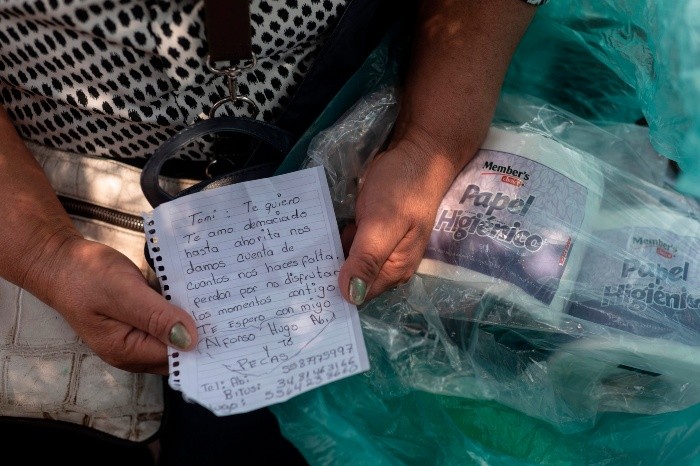 Tami: Te quiero
Te amo demaciado
hasta ahorita nos
damos cuenta de
cuantos nos haces falta.
perdon por no disfrutar
los momentos contigo
Te Espero con migo
Alfonso Hugo Abi
y Yo
PECAS
Tel: Abi: 5587975997
Bitus:
Hugo:
Member's
choice
Papel
Higiénico
Member's
Papel
Higiénico